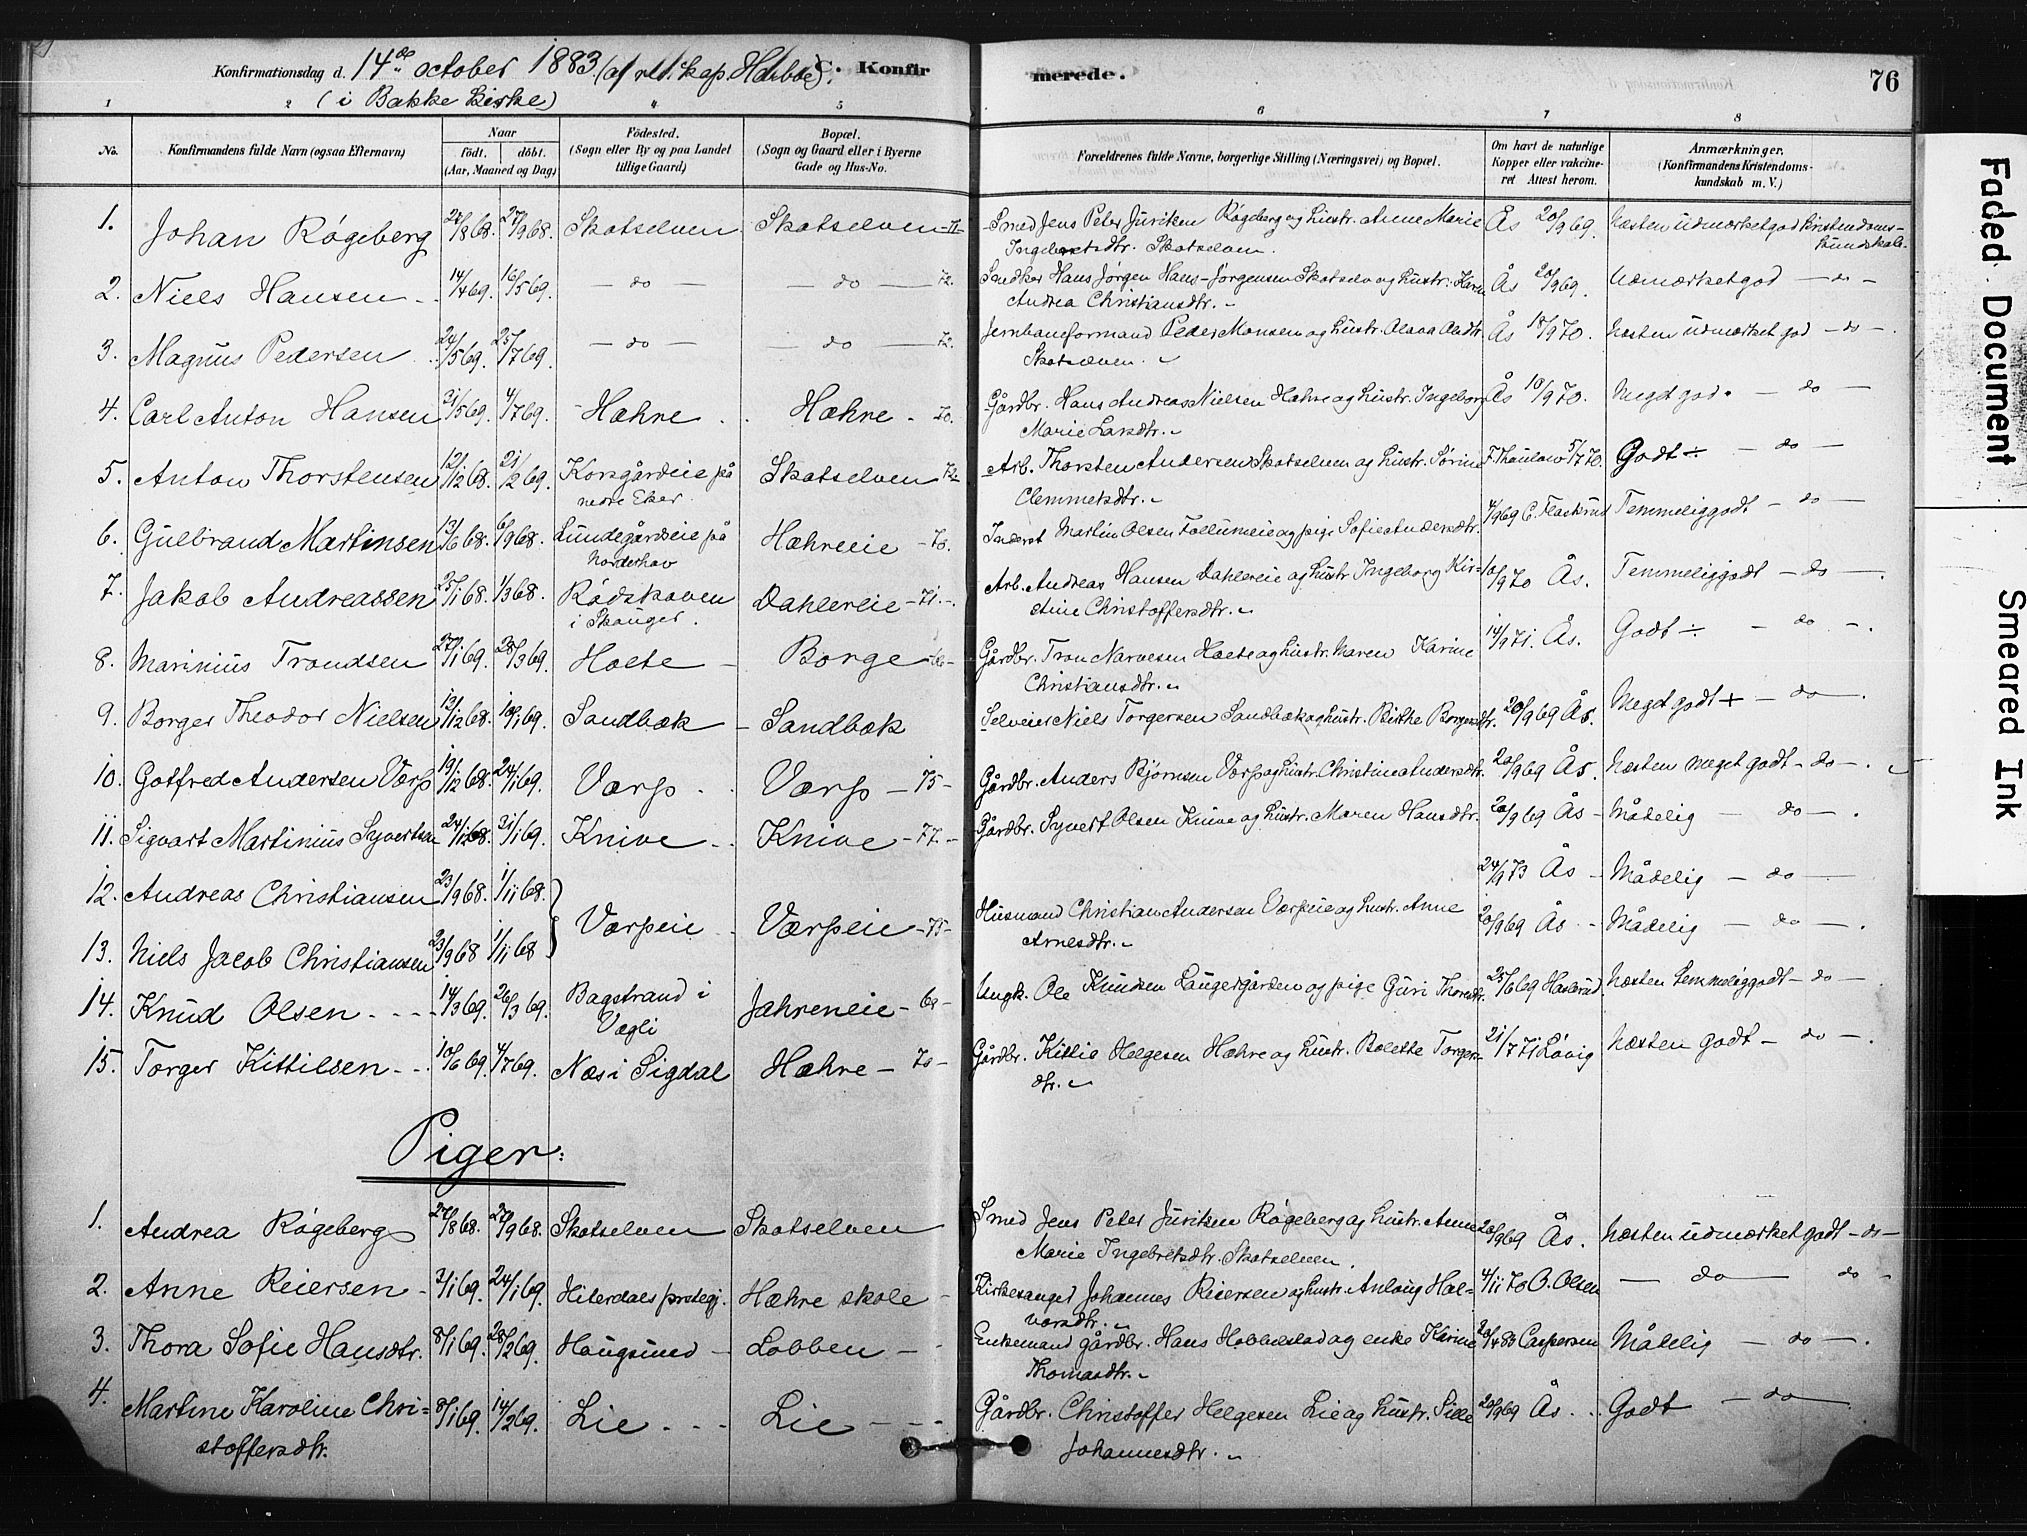 Konfirmationsdag d. 14de october 1883. (af res. kap. Harboe). C. Konfirmerede. 76
(i Bakke Kirke)
1 2 4 5 6 7 8
No. Konfirmandens fulde Navn (ogsaa Efternavn) Naar født. døbt. (Aar, Maaned og Dag) Fødested. (Sogn eller By og paa Landet tillige Gaard) Bopæl. (Sogn og Gaard eller i Byerne Gade og Hus-No. Forældrenes fulde Navne, borgerlige Stilling (Næringsvei) og Bopæl. Om havt de naturlige Kopper eller vakcineret Attest herom. Anmærkninger. (Konfirmandens Kristendomskundskab m. V.)
1. Johan Røgeberg 27/8 68. 27/9 68. Skotselven Skotselven -72- Smed Jens Peter Juritzen Røgeberg og hustr. Anne Marie Ås 20/9 69. Næsten udmærket god kristendoms-
Ingebretsdtr. Skotselven kundskab.
2. Niels Hansen 14/4 69. 16/5 69. - do - - do - 72. Hans Jørgen Hans-Jørgensen Skotselv og hustr. Karen Ås 20/9 69. Udmærket god - do -
Andrea Christiansdtr.
3. Magnus Pedersen 24/5 69. 25/7 69. - do - - do - 72. Jernbaneformand Peder Monsen og hustr. Olava Olsdtr. Ås 18/9 70. Næsten udmærket god - do -
Skotselven.
4. Carl Anton Hansen 21/5 69. 4/7 69. Hæhre Hæhre - 70. Gårdbr. Hans Andreas Nielsen Hæhre og hustr. Ingeborg Ås 18/9 70. Meget god. - do -
Marie Larsdtr.
5. Anton Thorstensen 12/12 68. 21/2 69. Korsgårdeie på Skotselven 72 Arb. Thorsten Andersen Skotselven og hustr. Sørine F. Thaulow 5/7 70. Godt ÷ - do -
nedre Eker. Clemmetsdtr.
6. Gulbrand Martinsen 13/6 68. 6/9 68. Lundegårdseie på Hæhreeie - 70. Inderst Martin Olsen Follumeie og pige Sofie Andersdtr. 4/9 69 C. Flaskerud Temmelig godt - do -
Norderhov
7. Jakob Andreassen 25/1 68. 1/3 68. Rødskoven Dahlereie - 71. Arb. Andreas Hansen Dahlereie og hustr. Ingeborg Kir- 18/9 70 Ås. Temmelig godt - do -
i Skouger. stine Christoffersdtr.
8. Marinius Trondsen 27/1 69. 28/3 69. Holte - Borge Gårdbr. Tron Narvesen Holte og hustr. Maren Karine 14/9 71. Ås. Godt ÷ - do -
Christiansdtr.
9. Borger Theodor Nielsen 13/12 68. 10/1 69. Sandbæk - Sandbæk Selveier Niels Torgersen Sandbæk og hustr. Birthe Borgersdtr. 20/9 69 Ås. Meget godt + - do -
10. Gotfred Andersen Værp 19/12 68. 24/1 69. Værp Værp - 75 - Gårdbr. Anders Bjørnsen Værp og hustr. Christine Andersdtr. 20/9 69 Ås. Næsten meget godt - do -
11. Sigvart Martinius Syvertsen 24/12 68. 31/1 69. Knive Knive - 77 - Gårdbr. Syvert Olsen Knive og hustr. Maren Hansdtr. 20/9 69 Ås - Mådelig - do -
12. Andreas Christiansen 23/9 68. 1/11 68. 24/9 73 Ås - Mådelig - do -
Værpeie Værpeie - 75 - Husmand Christian Andersen Værpeie og hustr. Anne
13. Niels Jacob Christiansen 23/9 68 1/11 68 Arnesdtr. 20/9 69 Ås - Mådelig - do -
14. Knud Olsen 14/3 69. 26/3 69. Bagstrand i Jahreneie - 69 - Ungk. Ole Knudsen Laugesgården og pige Guri Thoresdtr. 25/6 69 Hasberud. Næsten temmelig godt - do -
Vegli
15. Torger Kittilsen 10/6 69. 4/7 69. Næs i Sigdal Hæhre - 70 - Gårdbr. Kittil Helgesen Hæhre og hustr. Bolette Torger- 21/7 71 Løvig Næsten godt - do -
dtr.
Piger:
1. Andrea Røgeberg 27/8 68. 27/9 68. Skotselven Skotselven Smed Jens Peter Juritzen Røgeberg og hustr. Anne 20/9 69 Ås. Næsten udmærket godt - do -
Marie Ingebretsdtr. Skotselven.
2. Anne Reiersen 2/1 69. 24/1 69. Hiterdals prstgj. Hæhre skole - Kirkesanger Johannes Reiersen og hustr. Anlaug Hal- 4/11 70 O. Olsen - do - do -
vorsdtr.
3. Thora Sofie Hansdtr. 8/1 69. 28/2 69. Hougsund - Lobben - Enkemand gårdbr. Hans Hobbelstad og enke Karine 20/4 83 Caspersen Mådelig - do -
Thomasdtr.
4. Martine Karoline Chri= 8/1 69. 14/2 69. Lie Lie Gårdbr. Christoffer Helgesen Lie og hustr. Sille 20/9 69 Ås Godt - do -
stoffersdtr. Johannesdtr.
Faded Document
Smeared Ink